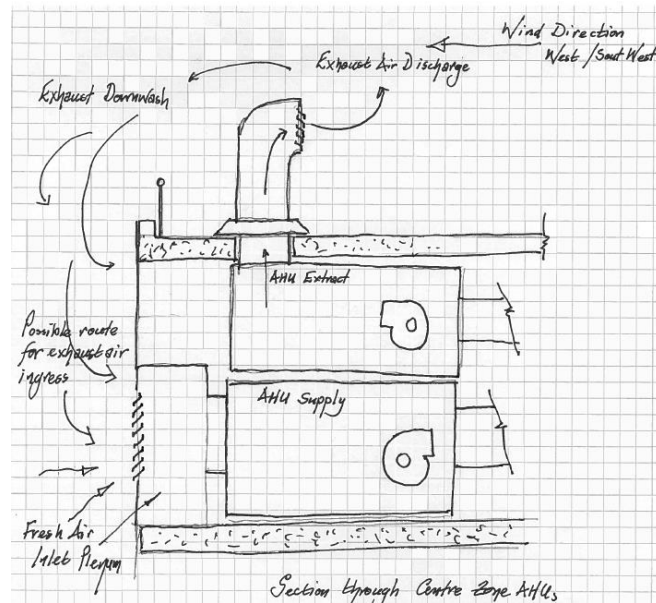 Wind Direction
West / Sout West
Exhaust Air Discharge
Exhaust Downwash
AHU Extract
Possible route
for exhaust air
ingress
AHU Supply
Fresh Air
Inlet Plenum
Section through Centre Zone AHUs